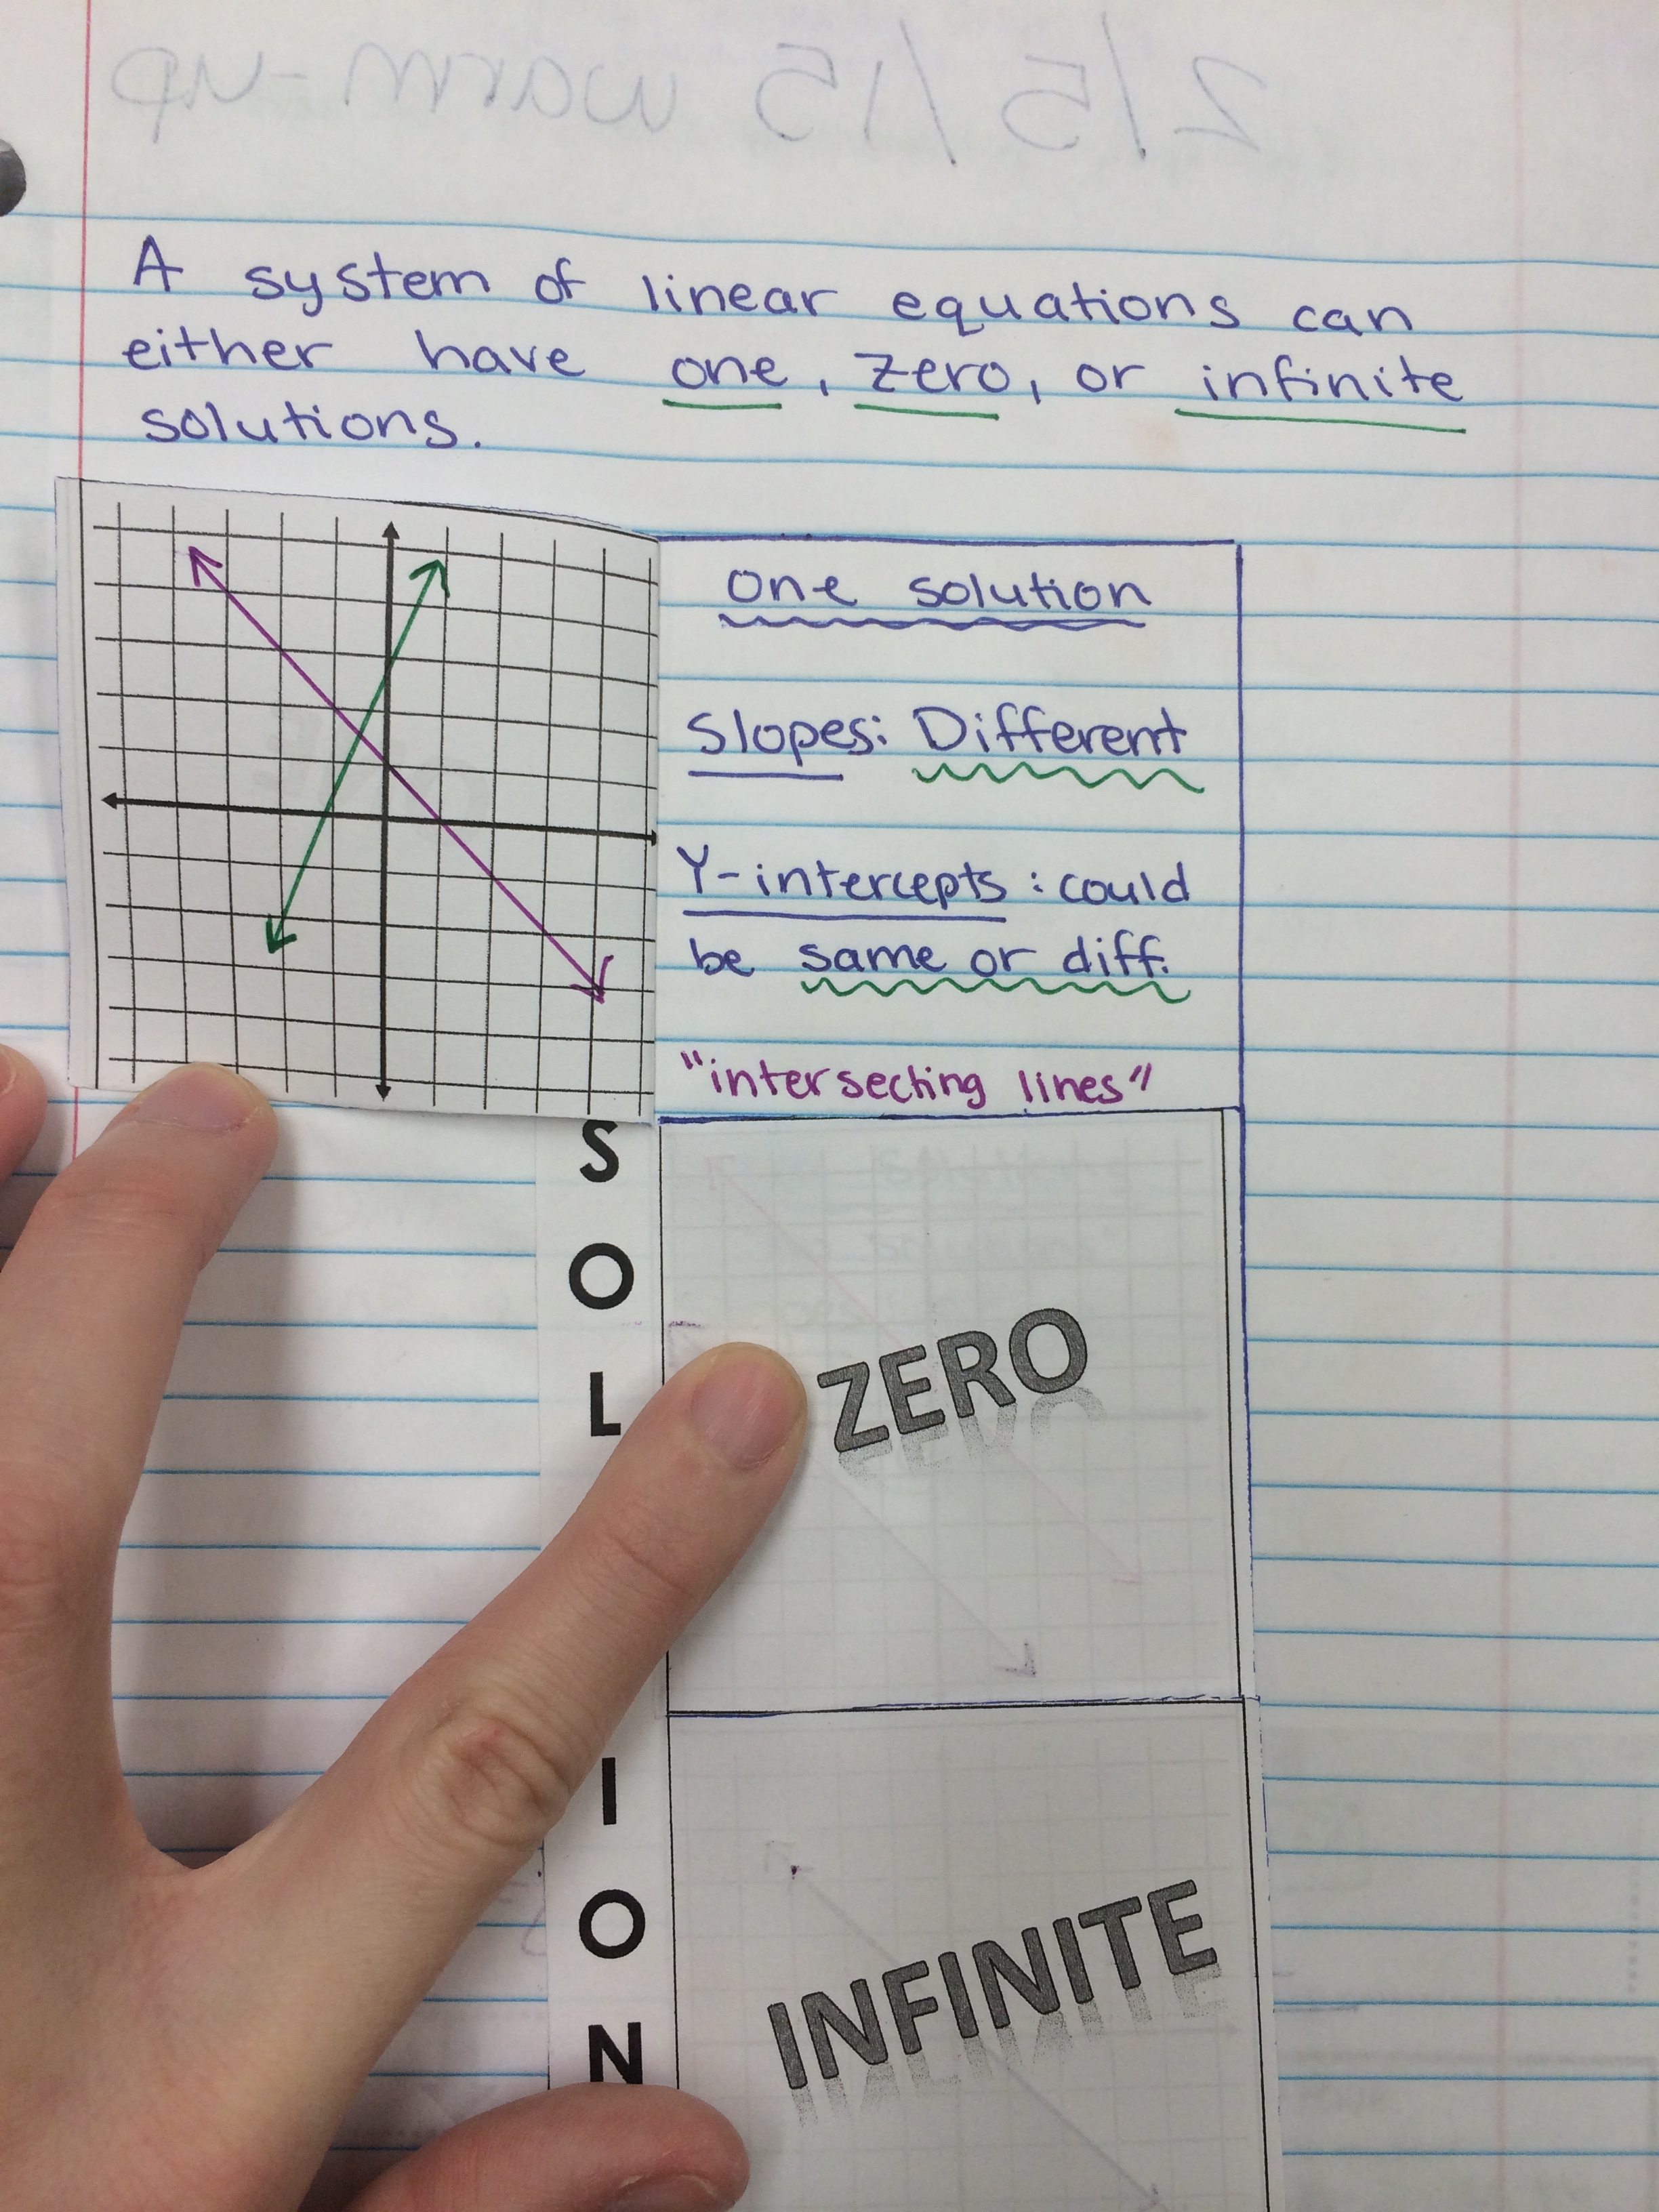 2/5/15 warm-up
A system of linear equations can
either have one, zero, or infinite
solutions.
One solution
Slopes: Different
Y-intercepts: could
be same or diff.
"intersecting lines"
S
O
L
I
O
N
ZERO
INFINITE